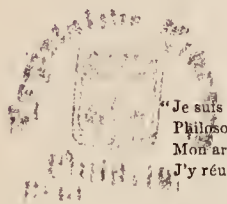 “Je suis
Philoso
Mon ar
J'y réu